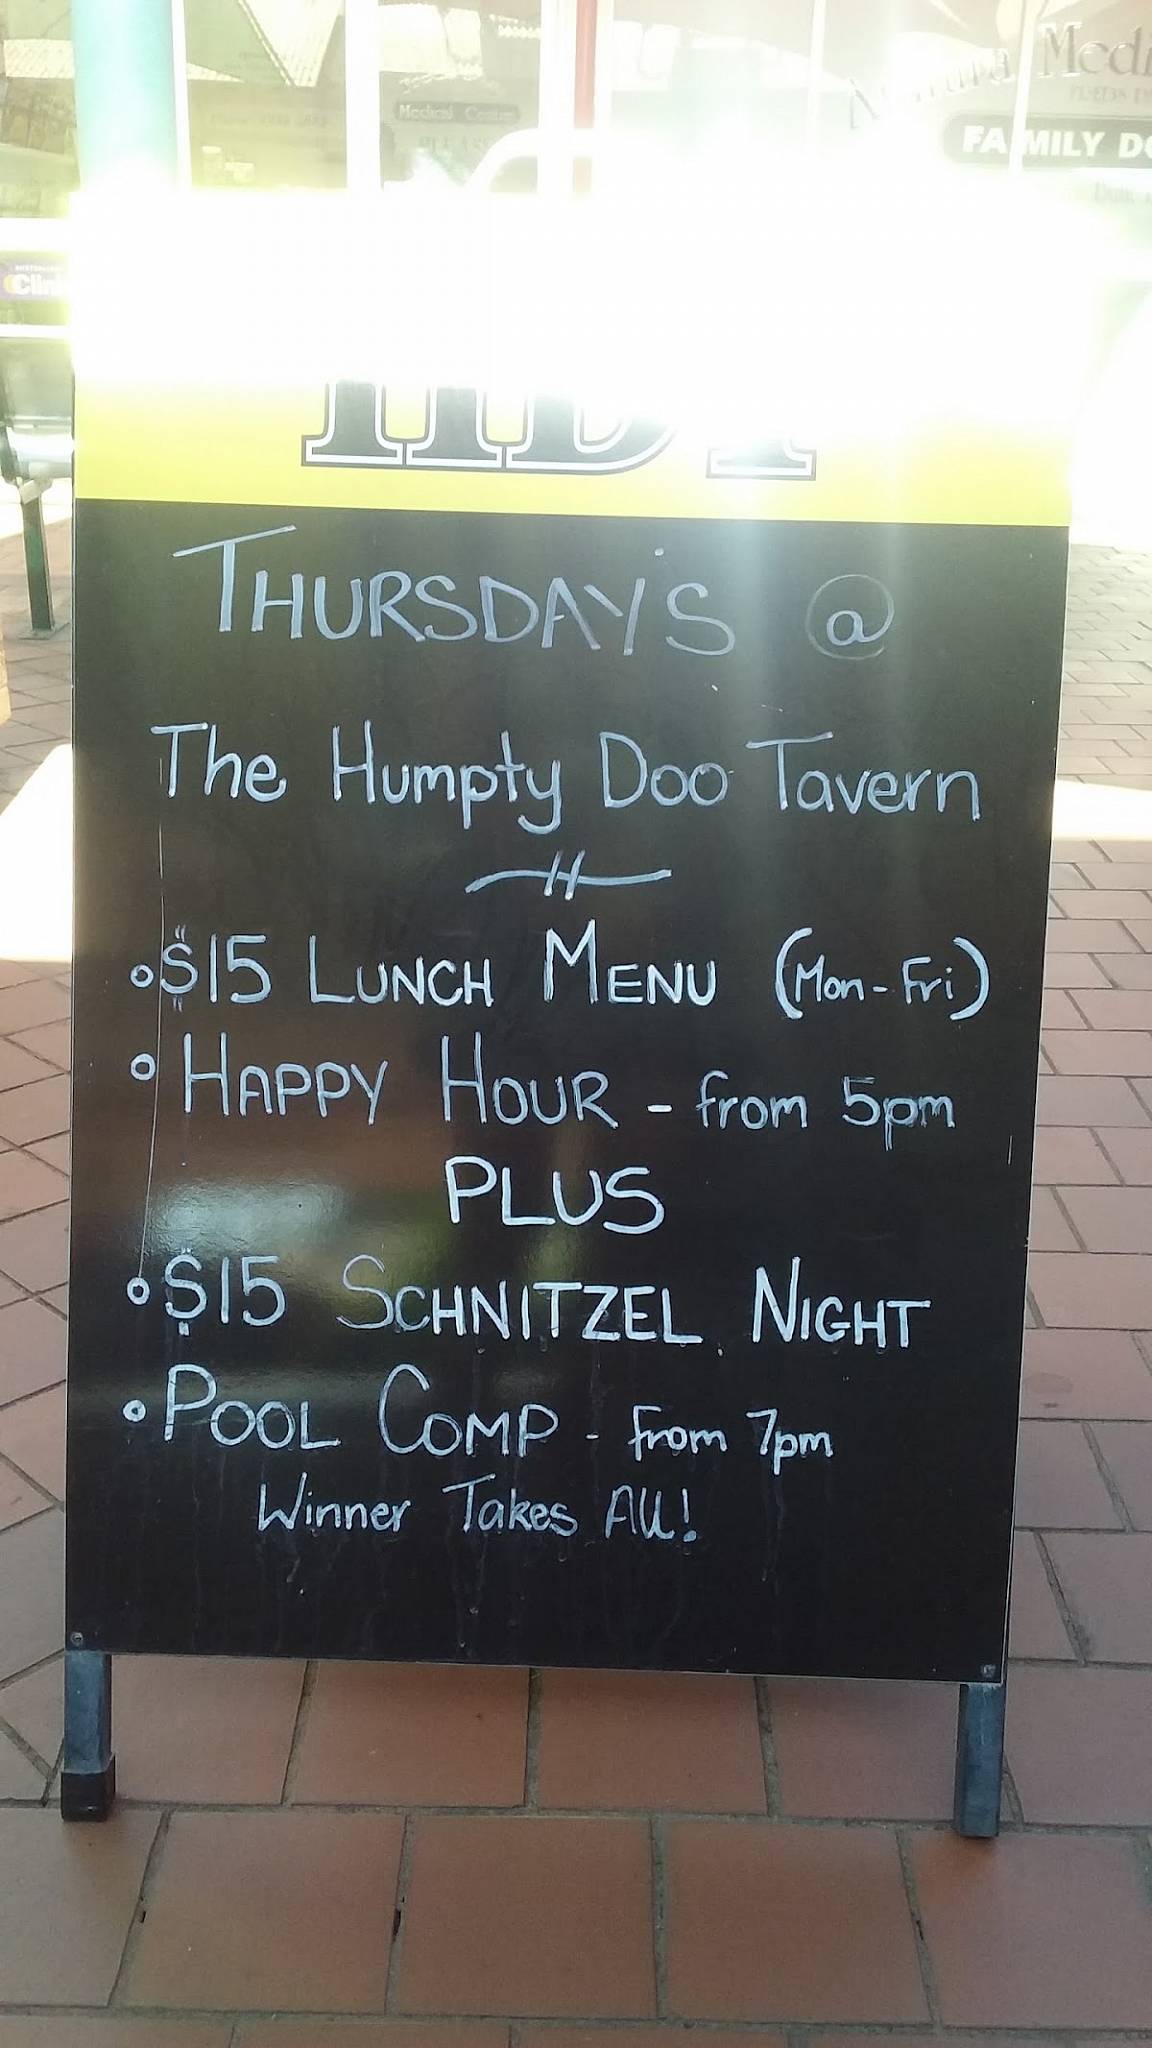 Medical Centre
Medi
FAMILY DO
Clini
HDT
THURSDAY'S @
The Humpty Doo Tavern
$15 LUNCH MENU (Mon-Fri)
HAPPY HOUR - from 5pm
PLUS
$15 SCHNITZEL NIGHT
POOL COMP - from 7pm
Winner Takes All!